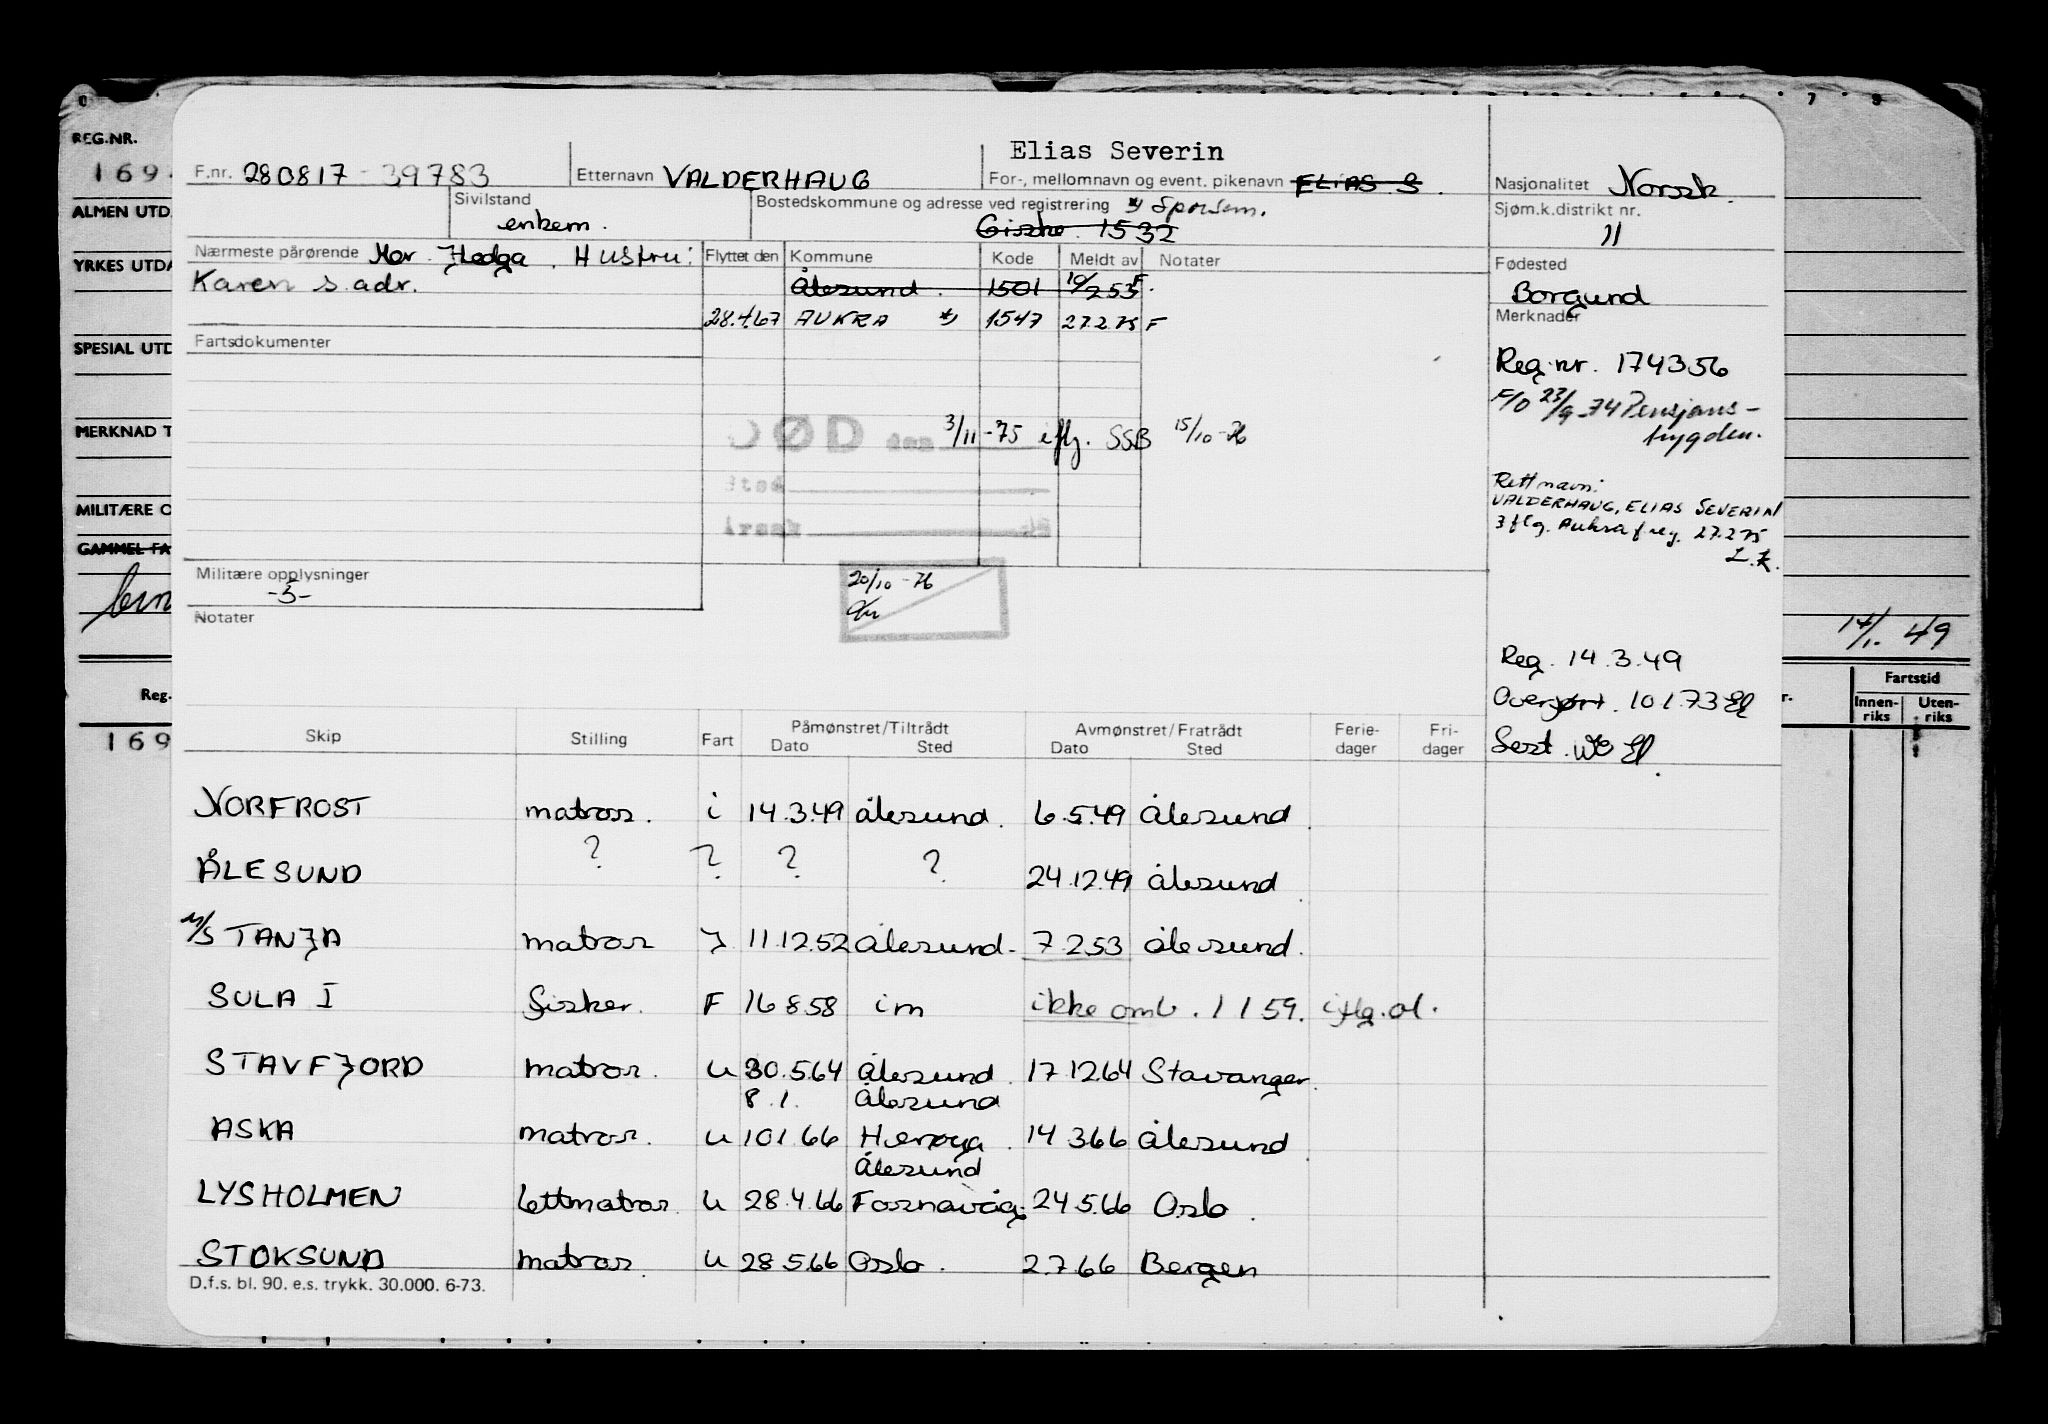 REG.NR.
169
ALMEN UTD
YRKES UTDA
SPESIAL UTD
MERKNAD T
MILITÆRE O
GAMMEL FA
Reg.
169
Elias Severin
F.nr. 280817-39783 Etternavn VALDERHAUG For-, mellomnavn og event. pikenavn ELIAS S.
Sivilstand enkem. Bostedskommune og adresse ved registrering *) Sporsem.
Giske. 1532
Nærmeste pårørende Mor Hedga. Hustru: Flyttet den Kommune Kode Meldt av Notater
Karen s. adr. Ålesund. 1501 10/2 53 F.
28.4.67 AUKRA *) 1547 27.2.75 F
Fartsdokumenter
DØD den 3/11-75 iflg. SSB 15/10-76
Sted
Årsak
Militære opplysninger
-5-
20/10-76
Notater
Nasjonalitet Norsk.
Sjøm.k.distrikt nr.
11
Fødested
Borgund
Merknader
Reg.nr. 174356
F/O 23/9-74 Pensjons-
trygden.
Rett navn:
VALDERHAUG, ELIAS SEVERIN
iflg. Aukra f.reg. 27.2.75
L.K.
Reg. 14.3.49
Overført. 10.1.73 El
Sest. WO El.
14/1. 49
Fartstid
Innen-riks Uten-riks
Skip Stilling Fart Påmønstret/Tiltrådt Dato Sted Avmønstret/Fratrådt Dato Sted Ferie-dager Fri-dager
NORFROST matros. i 14.3.49 Ålesund. 6.5.49 Ålesund.
ÅLESUND ? ? ? ? 24.12.49 Ålesund
M/S TANJA matros J 11.12.52 Ålesund. 7.2.53 Ålesund.
SULA I Fisker. F 16 8 58 im ikke omb. 1 1 59. iflg. al.
STAVFJORD matros. u 30.5.64 Ålesund. 17.12.64 Stavanger.
8.1. Ålesund
ASKA matros. u 10.1.66 Herøya. 14 3 66 Ålesund
Ålesund
LYSHOLMEN lettmatros. u 28.4.66 Fosnavåg. 24.5.66 Oslo.
STOKSUND matros. u 28.5.66 Oslo. 2.7.66 Bergen
D.f.s. bl. 90. e.s. trykk. 30.000. 6-73.